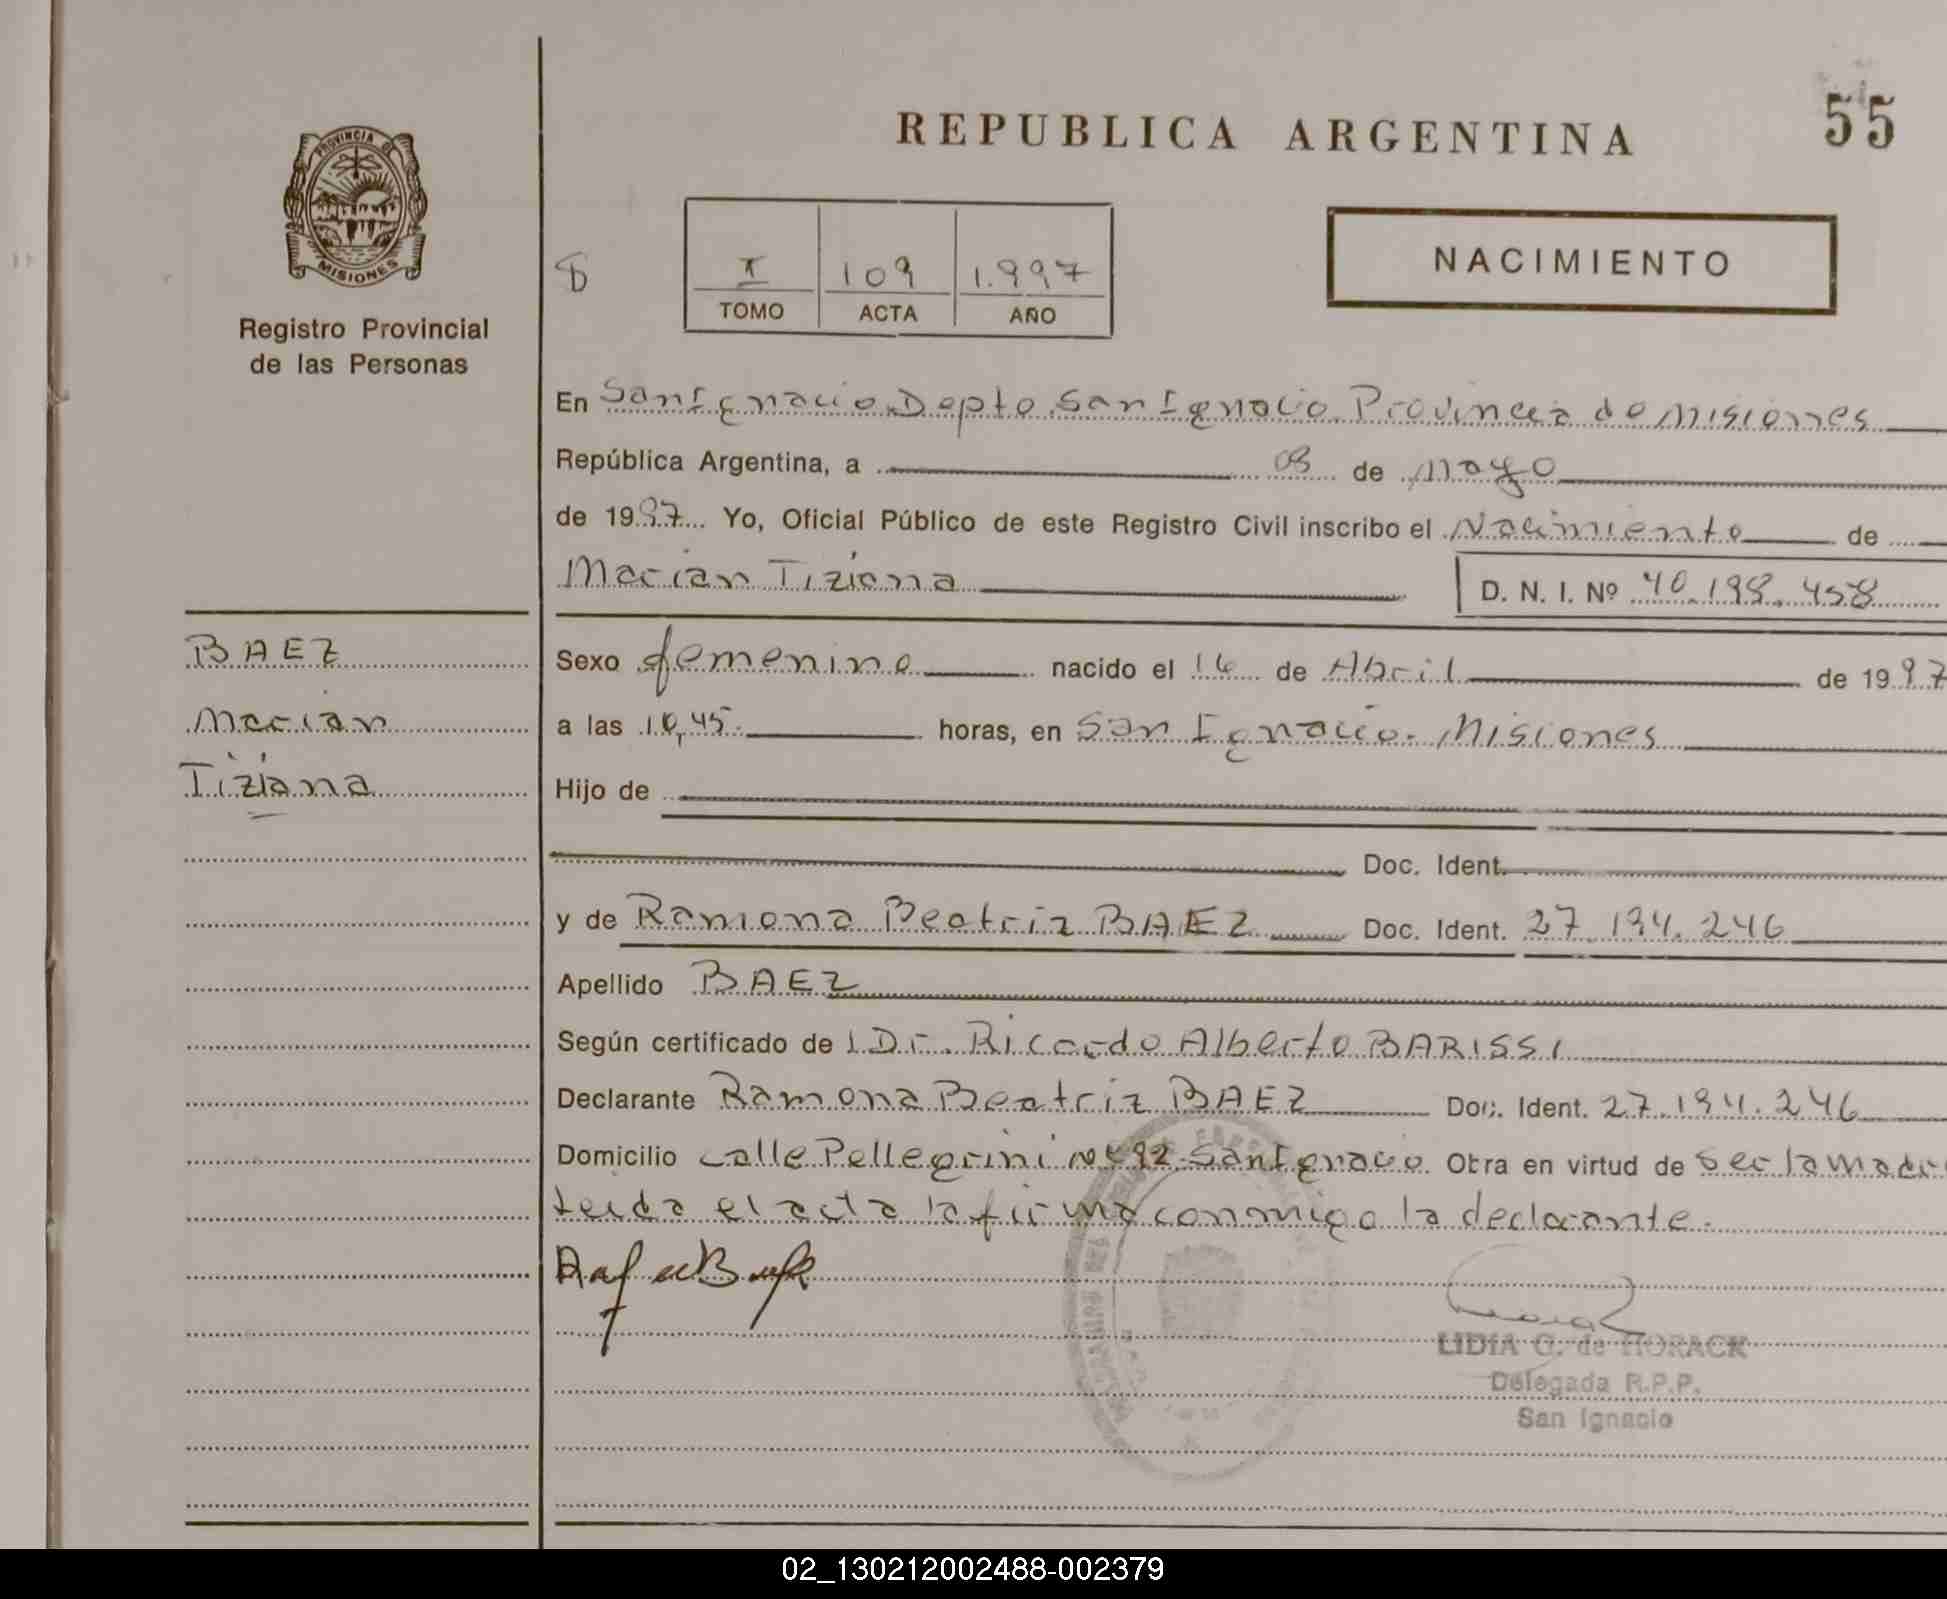 REPUBLICA ARGENTINA
55
PROVINCIA DE
MISIONES
Registro Provincial
de las Personas
I 109 1.997
TOMO ACTA AÑO
NACIMIENTO
En San Ignacio Depto San Ignacio Provincia de Misiones
República Argentina, a 08 de Mayo
de 1997 Yo, Oficial Público de este Registro Civil inscribo el Nacimiento de
Marian Tiziana D. N. I. Nº 40.198.458
BAEZ
Marian
Tiziana
Sexo femenino nacido el 16 de Abril de 1997
a las 10,45 horas, en San Ignacio. Misiones
Hijo de
Doc. Ident.
y de Ramona Beatriz BAEZ Doc. Ident. 27.194.246
Apellido BAEZ
Según certificado de l Dr. Ricardo Alberto BARISSI
Declarante Ramona Beatriz BAEZ Doc. Ident. 27.194.246
Domicilio calle Pellegrini Nº 92 San Ignacio. Obra en virtud de ser la madre
leida el acta la firma conmigo la declarante.
LIDIA G. de HORACK
Delegada R.P.P.
San Ignacio
02_130212002488-002379